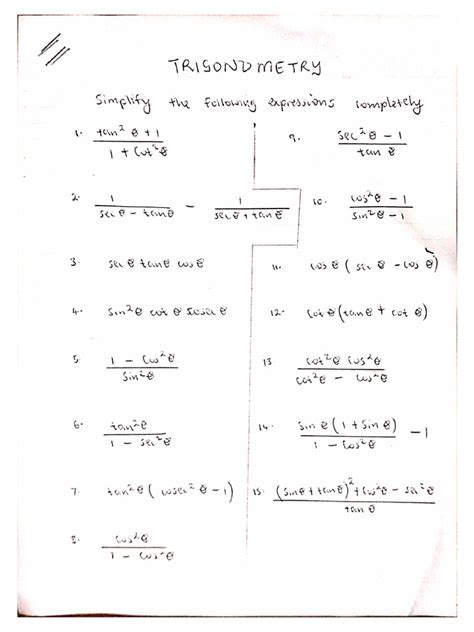 TRIGONOMETRY
Simplify the following expressions completely
1. (tan²θ + 1) / (1 + Cot²θ)
2. 1 / (sec θ - tanθ) - 1 / (secθ + tanθ)
3. sec θ tanθ cosθ
4. Sin²θ cot θ Cosec θ
5. (1 - Cos²θ) / Sin²θ
6. tan²θ / (1 - sec²θ)
7. tan²θ ( cosec²θ - 1)
8. cos²θ / (1 - Cos²θ)
9. (sec²θ - 1) / tan θ
10. (cos²θ - 1) / (sin²θ - 1)
11. cos θ ( sec θ - cos θ)
12. Cot θ (tan θ + cot θ)
13 (cot²θ cos²θ) / (cot²θ - Cos²θ)
14. sin θ (1 + Sin θ) / (1 - Cos²θ) - 1
15. ((Sinθ + tanθ)² + Cos²θ - Sec²θ) / tan θ